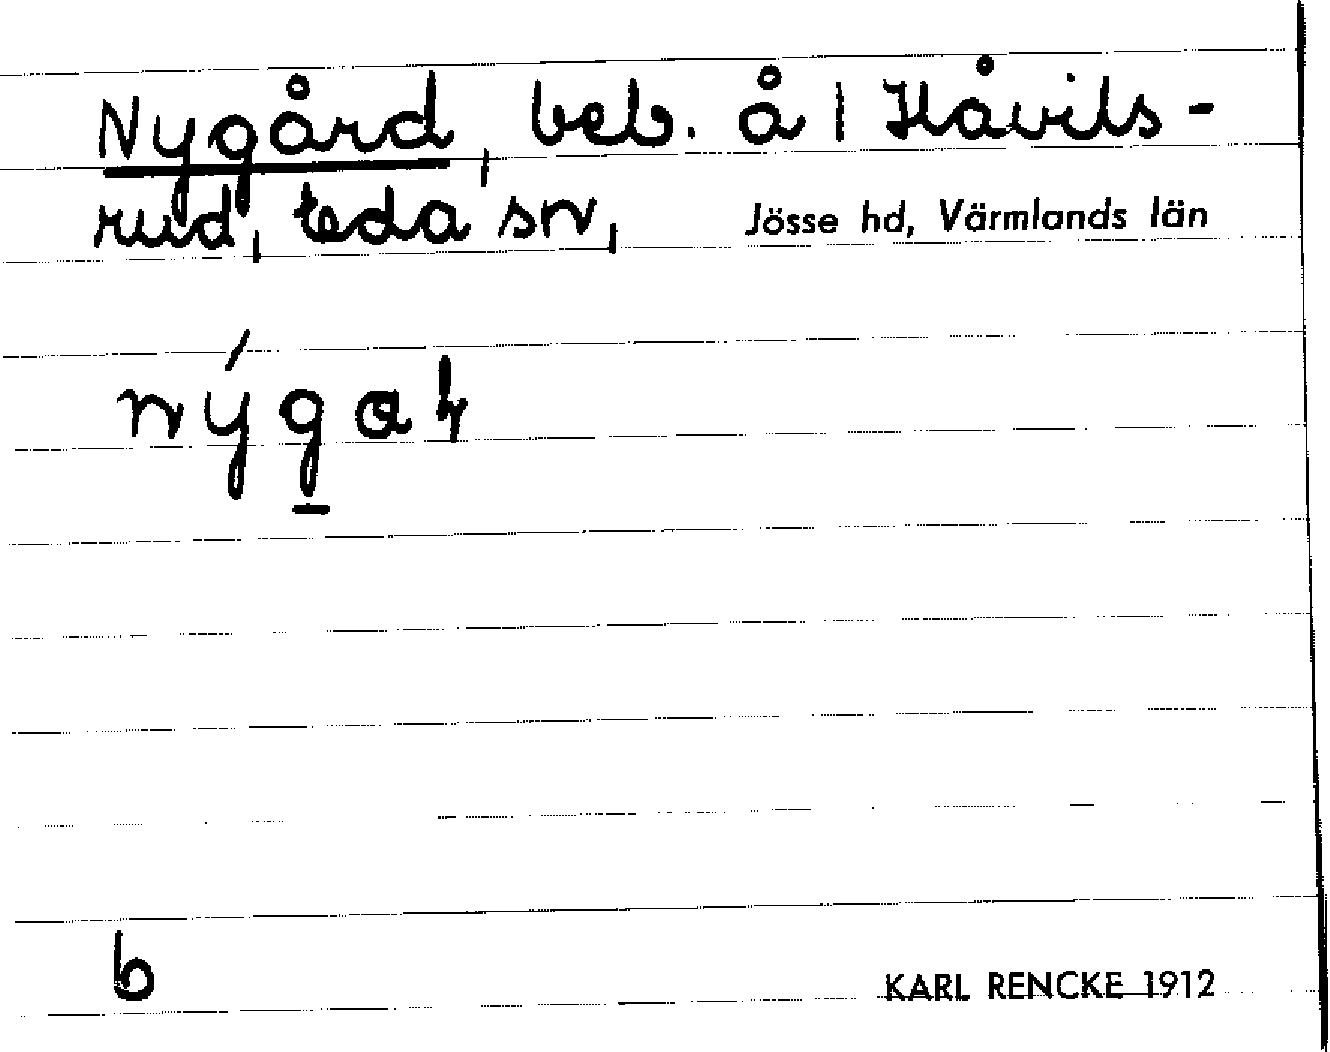 Nygård, beb. å 1 Håvils-
rud, Eda sn, Jösse hd, Värmlands län
nýgaɫ
b
KARL RENCKE 1912